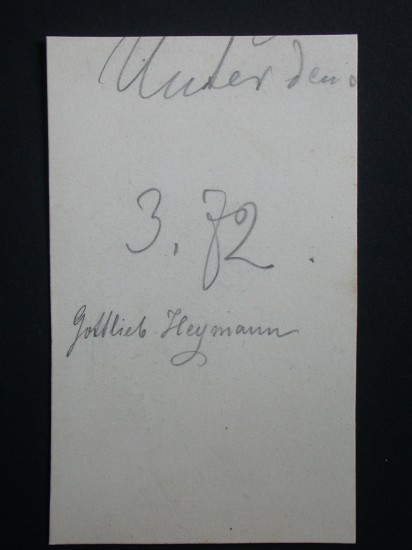 Unter den
3. 72.
Gottlieb Heymann